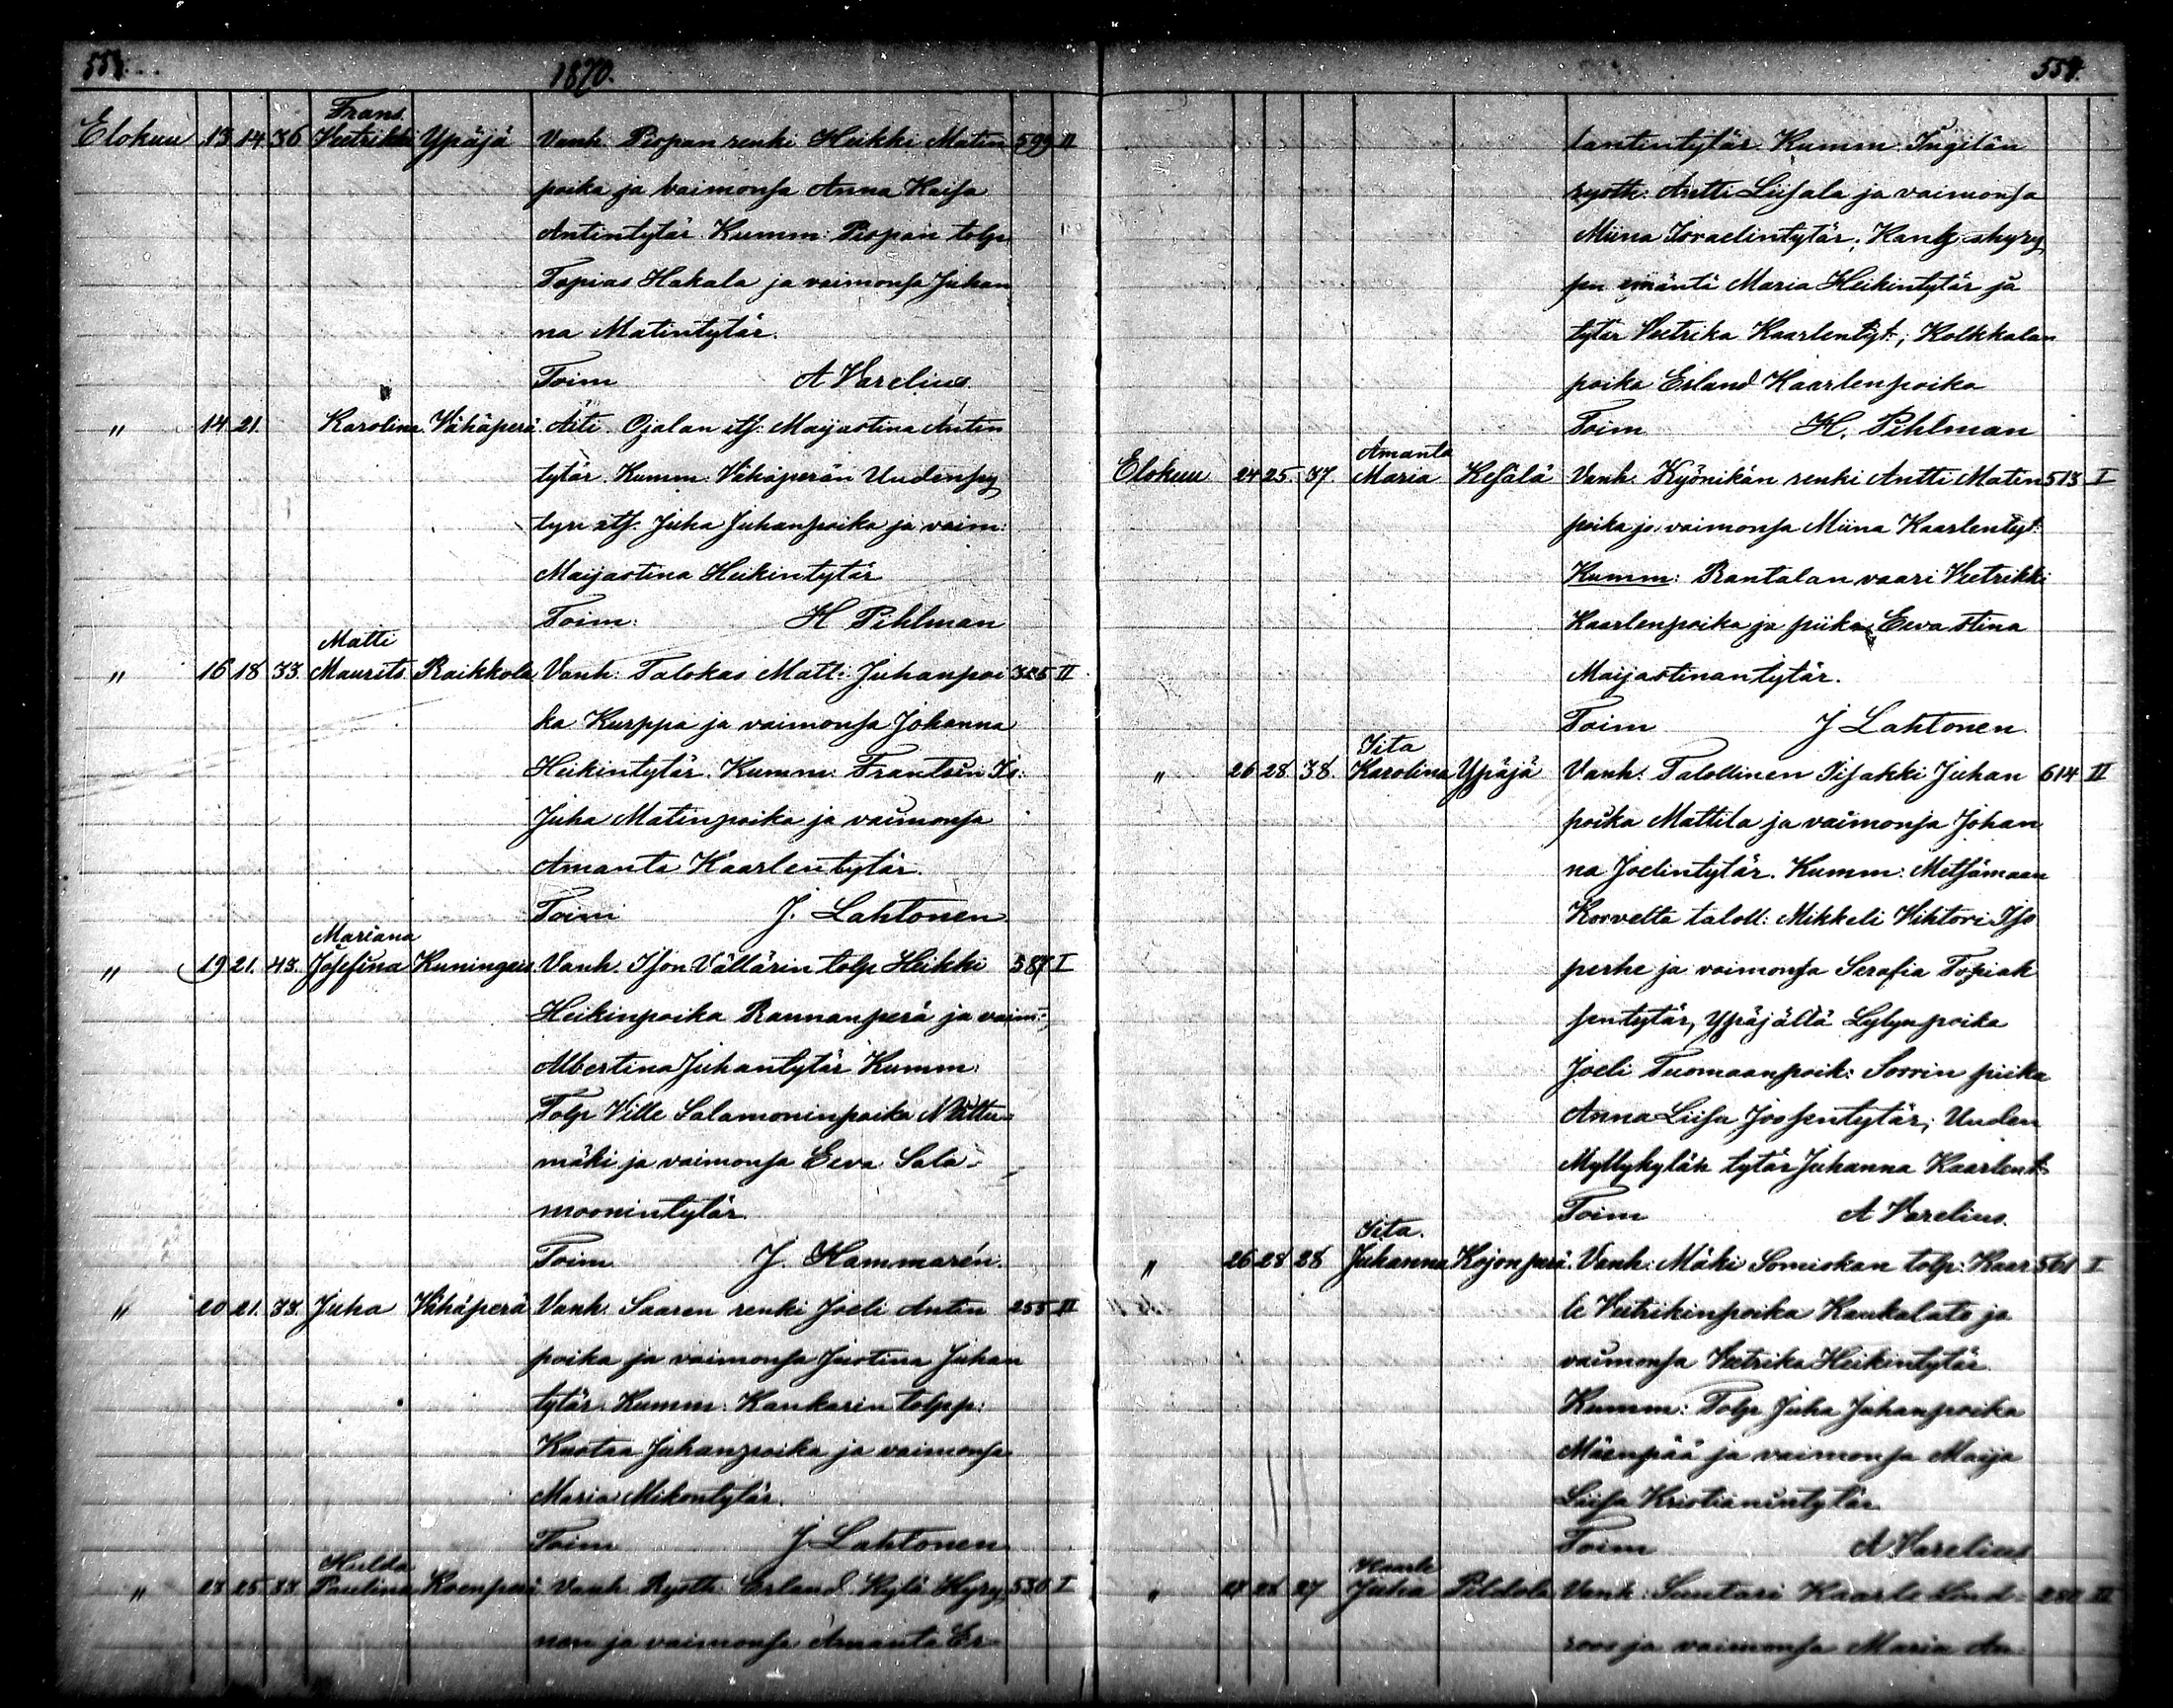 553.
1870.
Frans
Elokuu 13 14 36 Veetrikki Ypäjä Vanh: Pispan renki Heikki Matin 599 II
poika ja vaimonsa Anna Kaisa
Antintytär. Kumm: Pispan tolp.
Topias Hakala ja vaimonsa Juhan
na Matintytär.
Toim A Varelius
" 14 21. Karolina. Vähäperä. Äiti. Ojalan itS: Maijastina Antin
tytär. Kumm: Vähäperän Uuden
itS. Juha Juhanpoika ja vaim:
Maijastina Heikintytär
Toim: H Pihlman
Matti
" 16 18 33. Maurits Raikkola Vanh: Talokas Matti Juhanpoi 325 II
ka Kurppa ja vaimonsa Johanna
Heikintytär. Kumm: Frantsin Is:
Juha Matinpoika ja vaimonsa
Amanta Kaarlentytär.
Toim J. Lahtonen
Mariana
" 19 21. 43. Josefina Kuningais Vanh. Ison Vällärin tolp Heikki 387 I
Heikinpoika Rannanperä ja vaim:
Albertina Juhantytär Kumm:
Tolp Ville Salamoninpoika
mäki ja vaimonsa Eeva Sala-
moonintytär.
Toim J. Hammarén.
" 20 21. 33. Juha Vähäperä Vanh. Saaren renki Joeli Antin 255 II
poika ja vaimonsa Justina Juhan
tytär. Kumm: Kankarin tolpp:
Kustaa Juhanpoika ja vaimonsa
Maria Mikontytär.
Toim J Lahtonen
Hulda
" 23 25 33. Paulina Vanh. Rysth: Erland Kylä Hyry 530 I
nen ja vaimonsa Amanta Er
554.
lantintytär. Kumm:
rysth: Antti Liisala ja vaimonsa
Miina Israelintytär;
emäntä Maria Heikintytär ja
tytär Veetrika Kaarlentyt:; Kolkkalan
poika Erland Kaarlenpoika
Toim H. Pihlman
Amanta
Elokuu 24 25. 37. Maria Kesälä Vanh. Kyönikän renki Antti Matin 513 I
poika ja vaimonsa Miina Kaarlentyt.
Kumm: Rantalan vaari Veetrikki
Kaarlenpoika ja piika Eeva Stina
Maijastinantytär.
Toim J Lahtonen.
Iita
" 26 28. 38. Karolina Ypäjä Vanh: Talollinen Iisakki Juhan 614 II
poika Mattila ja vaimonsa Johan
na Joelintytär. Kumm: Metsämaan
Korvelta taloll: Mikkeli Vihtori Iso
perhe ja vaimonsa Serafia Topiak
sentytär, Ypäjältä Lylyn poika
Joeli Tuomaanpoik: Sorrin piika
Anna Liisa Joosentytär; Uuden
Myllykylän tytär Juhanna Kaarlent:
Toim A Varelius.
Iita.
" 26 28 28 Juhanna Kojonperä. Vanh: Mäki Somiskan tolp: Kaar 561 I
le Veetrikinpoika Kaukalato ja
vaimonsa Veetrika Heikintytär
Kumm: Tolp Juha Juhanpoika
Mäenpää ja vaimonsa Maija
Liisa Kristianintytär
Toim A Varelius
Kaarle
" 27 Juha Vanh: Suutari Kaarle Lind=
roos ja vaimonsa Maria An